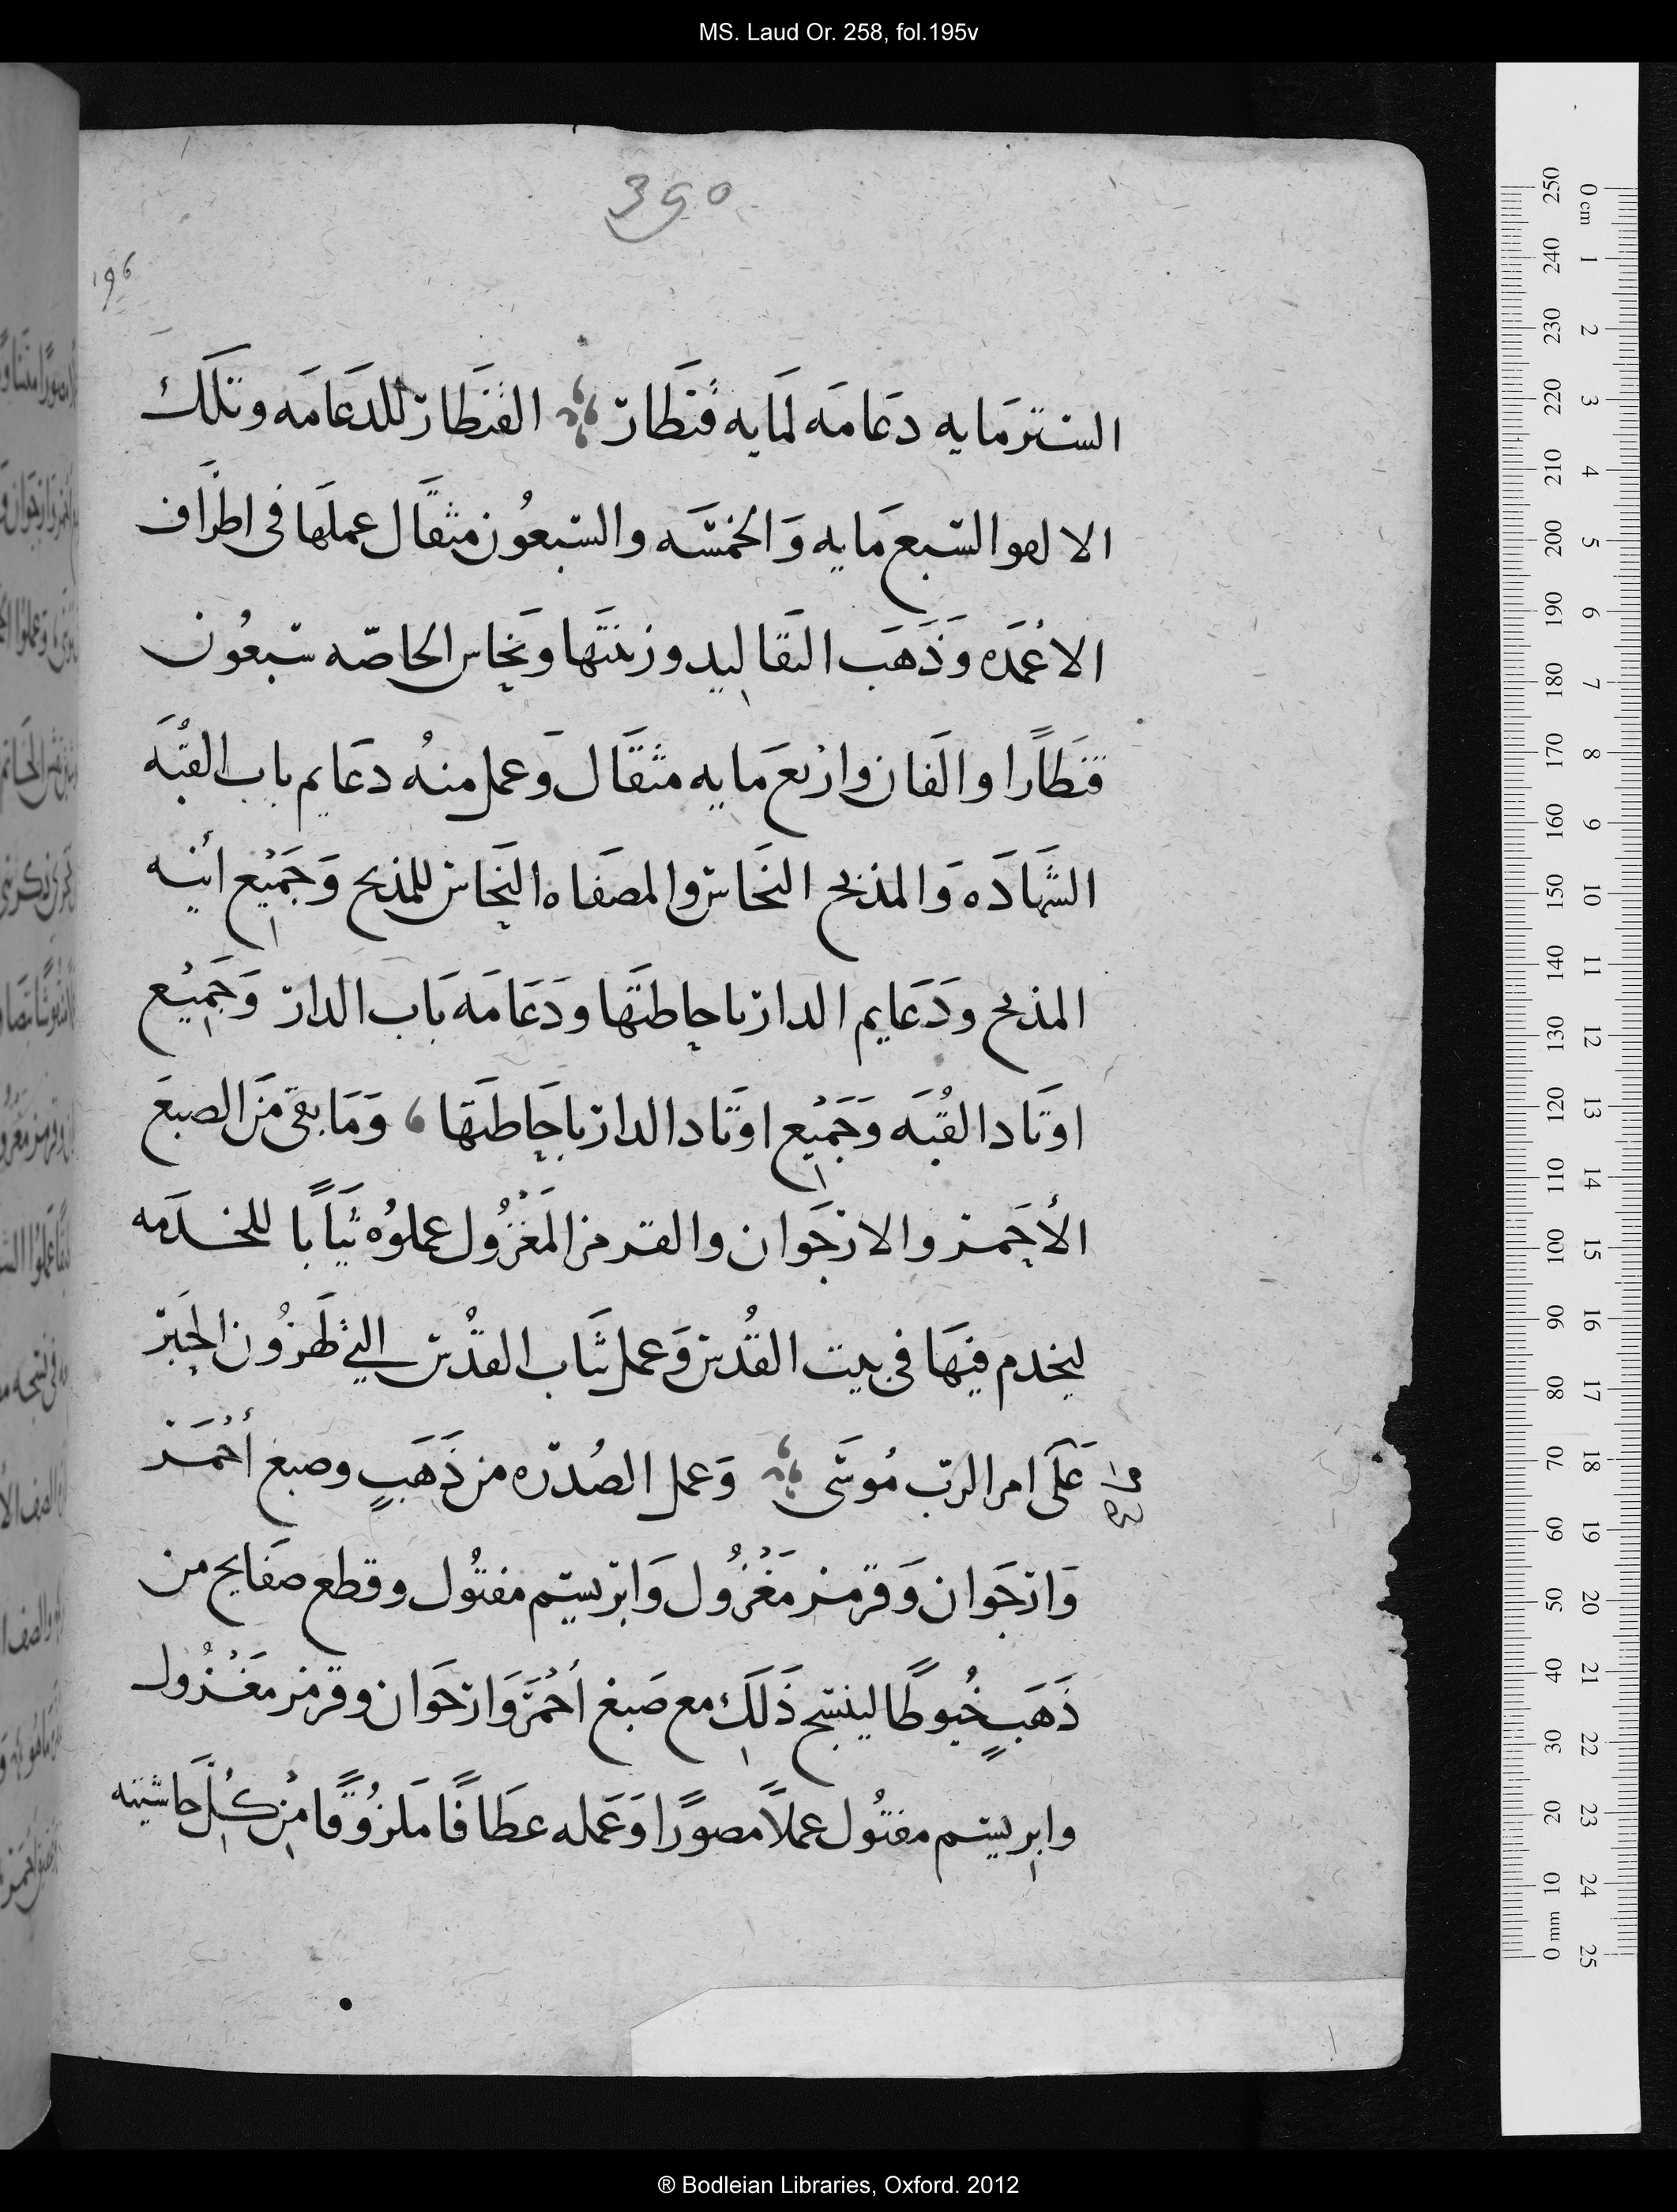 MS. Laud Or. 258, fol.195v
390
196
الستر مايه دعامه لمايه قنطار القنطار للدعامه وتلك
الالهو السبع مايه والخمسه والسبعون مثقال عملها في اطراف
الاعمده وذهب التقاليد وزينتها ونحاس الخاصه سبعون
قنطارا والفان واربع مايه مثقال وعمل منه دعايم باب القبه
الشهاده والمذبح النحاس والمصفاه النحاس للمذبح وجميع انيه
المذبح ودعايم الدار باحاطتها ودعامه باب الدار وجميع
اوتاد القبه وجميع اوتاد الدار باحاطتها وما بقي من الصبغ
الأحمر والارجوان والقرمز المغزول عملوه ثيابا للخدمه
ليخدم فيها في بيت القدس وعمل ثياب القدس التي لهرون الحبر
على امر الرب موسى وعمل الصدره من ذهب وصبغ أحمر
وارجوان وقرمز مغزول وابريسم مفتول وقطع صفايح من
ذهب خيوطا لينسج ذلك مع صبغ أحمر وارجوان وقرمز مغزول
وابريسم مفتول عملا مصورا وعمله عطافا ملزوقا من كل حاشيته
® Bodleian Libraries, Oxford. 2012